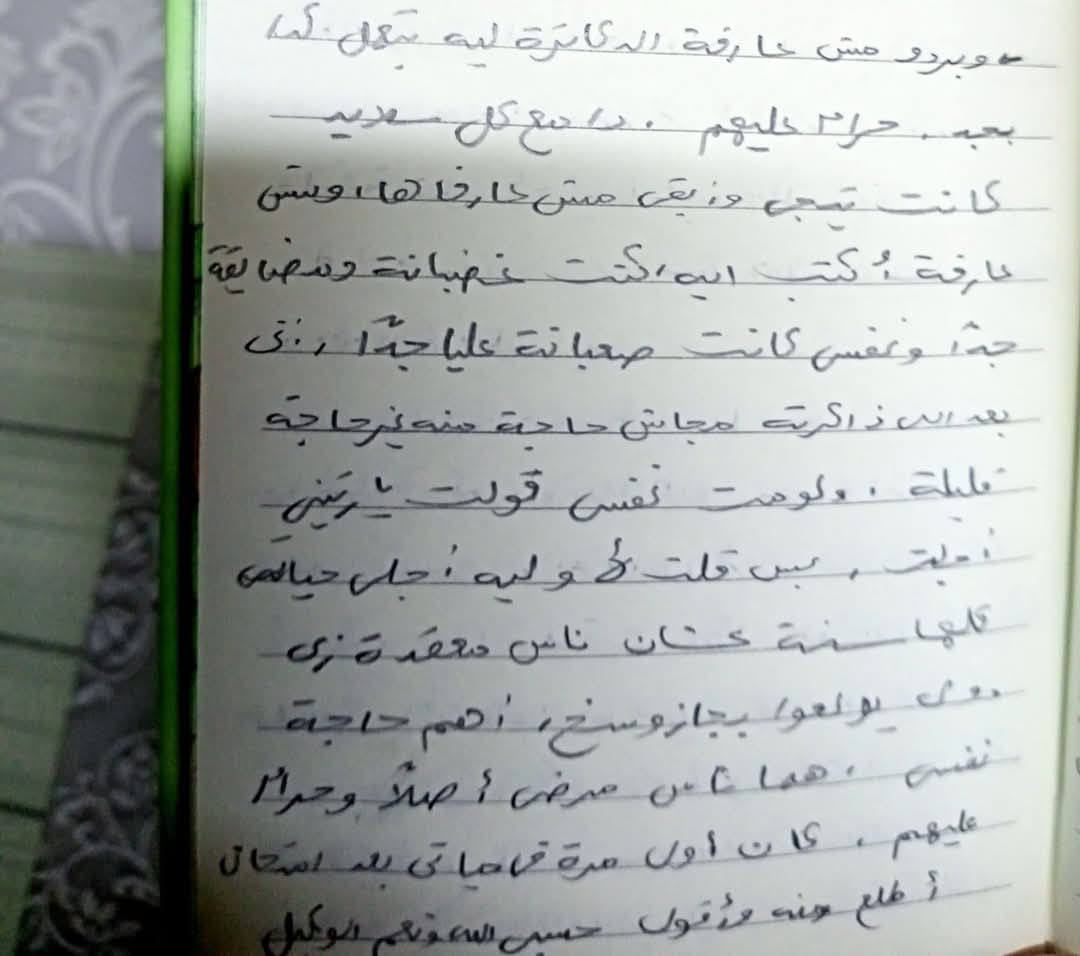 وبردو مش عارفة الدكاترة ليه بتعمل كدا
بجد. حرام عليهم. دا مع كل
كانت تيجى وزيقى مش عارفاها، ومش
عارفة أكتب ايه، كنت غضبانة ومضايقة
جدًا ونفسى كانت صعبانة عليا جدًا، زى
بعد اللى ذاكرته مجاش حاجة منه غير حاجة
قليلة. ولومت نفسى قولت ياريتنى
أجلت، بس قلت لأ وليه أجل حياتى
كلها سنة عشان ناس معقدة زى
دول يولعوا بجاز وسخ، أهم حاجة
نفسى. هما ناس مرضى أصلًا وحرام
عليهم. كان أول مرة فى حياتى بعد امتحان
أطلع منه وأقول حسبى الله ونعم الوكيل